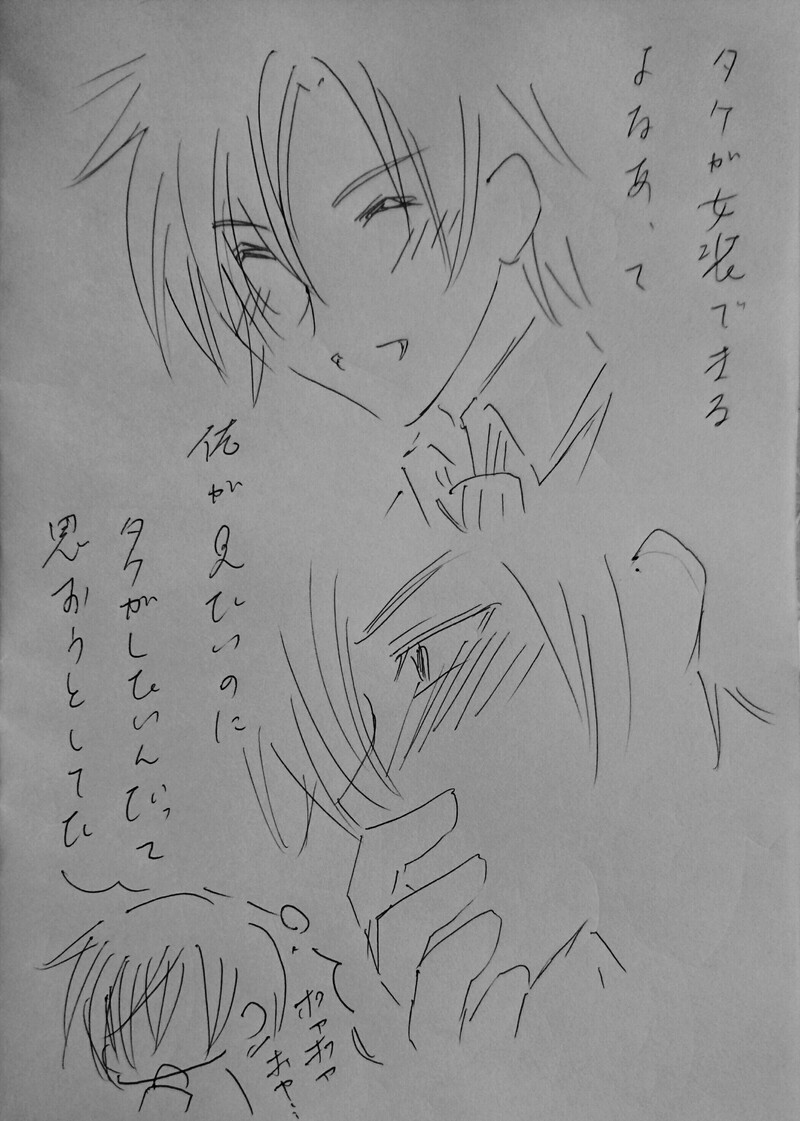 タケが女装できる
よなあ、て
俺が見たいのに
タケがしたいんだって
思おうとしてた
ホヤホヤ
ホヤ…